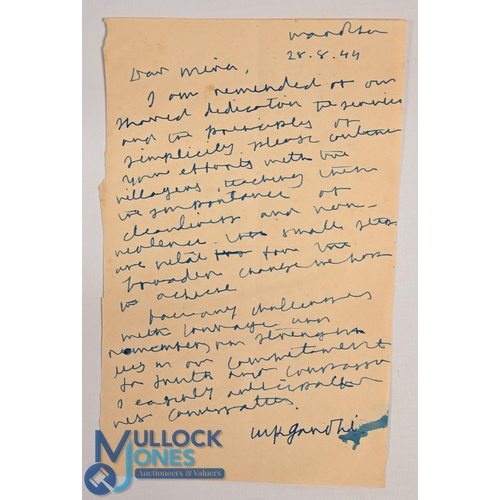 Wardha
28.8.44
Dear Mira,
I am reminded of our
shared dedication to service
and the principles of
simplicity. Please continue
your efforts with the
villagers, teaching them
the importance of
cleanliness and non-
violence. small steps
are vital for the
broader change we hope
to achieve
Face any challenges
with courage and
remember, our strength
lies in our commitment
to truth and compassion
I eagerly anticipate
MKGandhi
MULLOCK
JONES
Auctioneers & Valuers